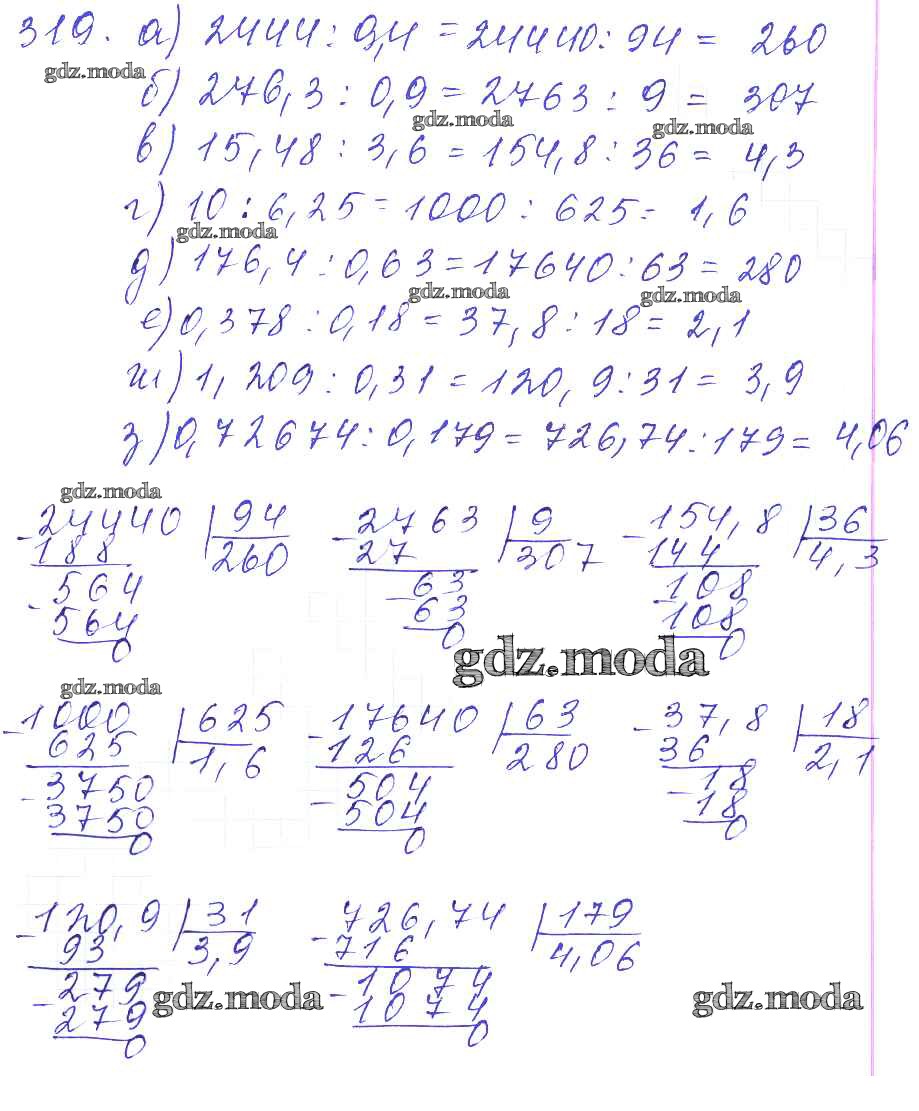 319. а) 2444 : 9,4 = 24440 : 94 = 260
gdz.moda
б) 276,3 : 0,9 = 2763 : 9 = 307
gdz.moda gdz.moda
в) 15,48 : 3,6 = 154,8 : 36 = 4,3
г) 10 : 6,25 = 1000 : 625 = 1,6
gdz.moda
д) 176,4 : 0,63 = 17640 : 63 = 280
gdz.moda gdz.moda
е) 0,378 : 0,18 = 37,8 : 18 = 2,1
ж) 1,209 : 0,31 = 120,9 : 31 = 3,9
з) 0,72674 : 0,179 = 726,74 : 179 = 4,06
gdz.moda
- 24440 | 94 - 2763 | 9 - 154,8 | 36
188 260 27 307 144 4,3
- 564 - 63 - 108
564 63 108
0 0 0
gdz.moda
gdz.moda
- 1000 | 625 - 17640 | 63 - 37,8 | 18
625 1,6 126 280 36 2,1
- 3750 - 504 - 18
3750 504 18
0 0 0
- 120,9 | 31 - 726,74 | 179
93 3,9 716 4,06
- 279 - 1074
279 gdz.moda 1074 gdz.moda
0 0